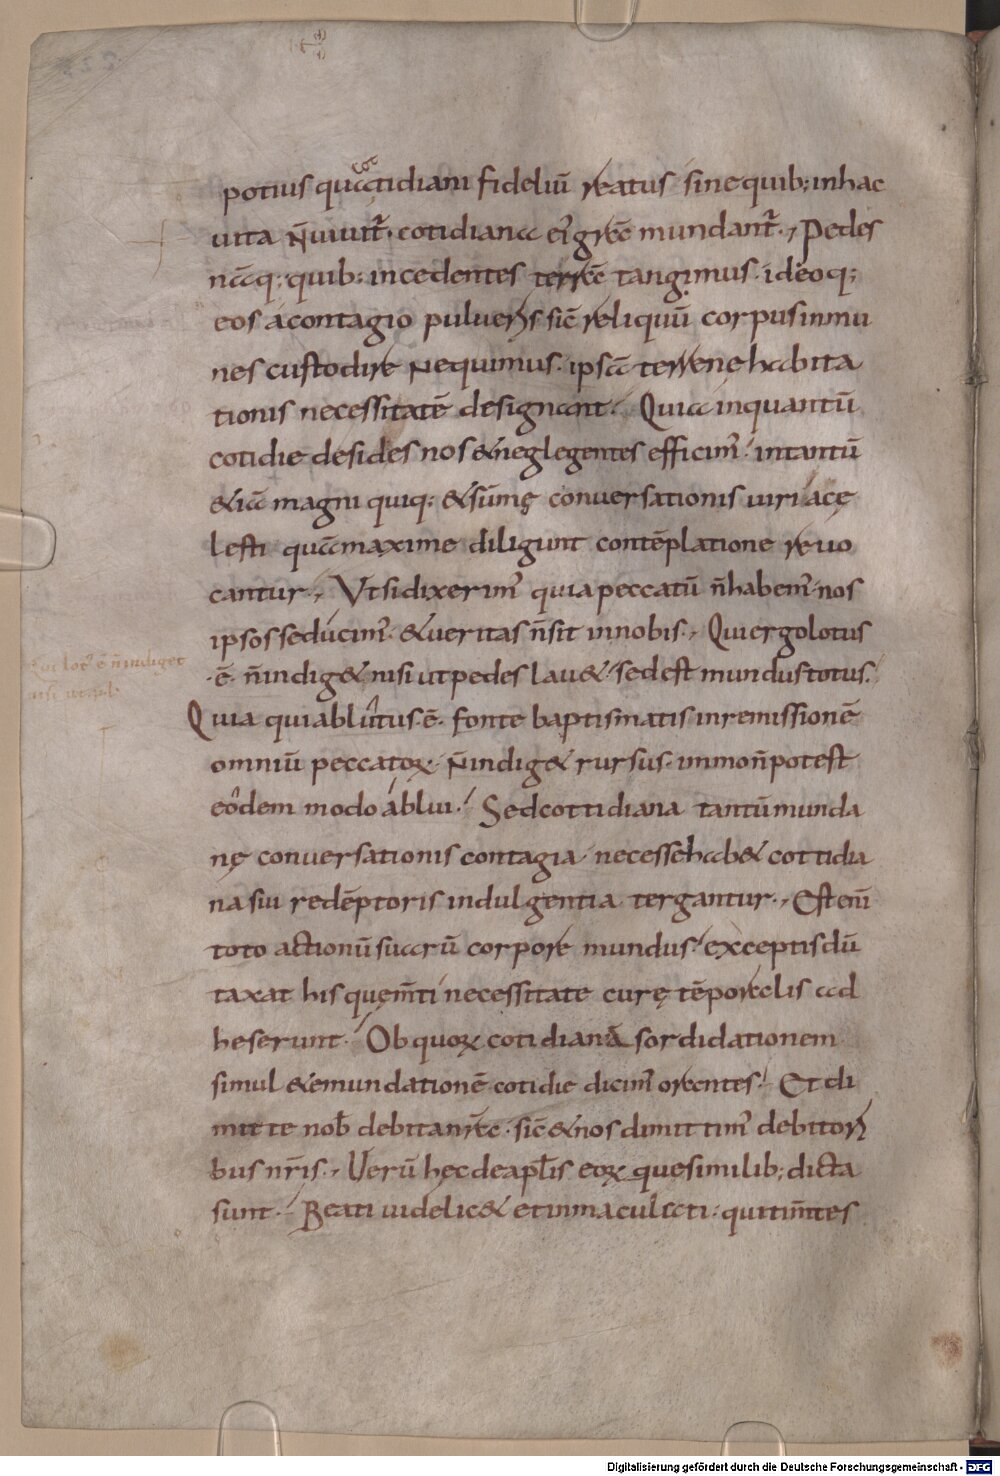 cot
potius quatidiani fideliū reatus sine quib; in hac
uita n̄ uiuit̄. cotidiana ei᾽ gr̄e mundant̄., Pedes
nāq; quib; incedentes terrē tangimus. ideoq;
eos a contagio pulueris sic̄ reliquū corpus inmu
nes custodire nequimus. ipsā terrenę habita
tionis necessitatē designant. Quia inquantū
cotidie desides nos & neglegentes efficim᾽. intantū
& iā magni quiq; & sūmę conuersationis uiri a cę
lesti quā maxime diligunt contēplatione reuo
cantur., Vt si dixerim᾽ quia peccatū n̄ habem᾽. nos
ipsos seducim᾽. & ueritas n̄ sit in nobis., Qui ergo lotus
.ē. n̄ indig& nisi ut pedes lau& sed est mundus totus.
Qui lot᾽ ē n̄ indiget
nisi ut
Quia qui ablutus ē. fonte baptismatis in remissionē
omniū peccatoꝝ. n̄ indig& rursus. immo n̄ potest
eodem modo ablui. Sed cottidiana tantū munda
nę conuersationis contagia necesse hab& cottidia
na sui redēptoris indulgentia tergantur., Est enī
toto actionū suarū corpore mundus exceptis dū
taxat his quę m̄ti necessitate curę tēporalis ad
heserunt. Ob quoꝝ cotidianā sordidationem
simul & emundationē cotidie dicim᾽ orantes. Et di
mitte nob̄ debita nr̄a. sic̄ & nos dimittim᾽ debitori
bus nr̄is., Uerū hęc de apl̄is eoꝝ que similib; dicta
sunt. Beati uidelic& et inmaculati: qui tim̄tes
Digitalisierung gefördert durch die Deutsche Forschungsgemeinschaft - DFG